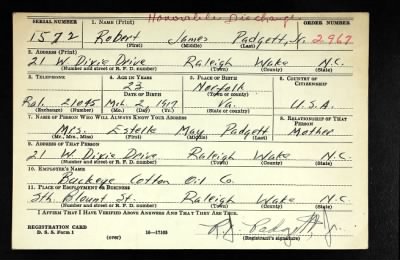 Honorable Discharge
SERIAL NUMBER 1. NAME (Print) ORDER NUMBER
1572 Robert James Padgett, Jr. 2967
(First) (Middle) (Last)
2. ADDRESS (Print)
21 W Dixie Drive Raleigh Wake N.C.
(Number and street or R. F. D. number) (Town) (County) (State)
3. TELEPHONE 4. AGE IN YEARS 5. PLACE OF BIRTH 6. COUNTRY OF CITIZENSHIP
23 Norfolk
DATE OF BIRTH (Town or county)
Ral. 21045 Mch. 2 1917 Va. U.S.A.
(Exchange) (Number) (Mo.) (Day) (Yr.) (State or country)
7. NAME OF PERSON WHO WILL ALWAYS KNOW YOUR ADDRESS 8. RELATIONSHIP OF THAT PERSON
Mrs. Estelle May Padgett Mother
(Mr., Mrs., Miss) (First) (Middle) (Last)
9. ADDRESS OF THAT PERSON
21 W. Dixie Drive Raleigh Wake N.C.
(Number and street or R. F. D. number) (Town) (County) (State)
10. EMPLOYER'S NAME
Buckeye Cotton Oil Co.
11. PLACE OF EMPLOYMENT OR BUSINESS
Sth. Blount St. Raleigh Wake N.C.
(Number and street or R. F. D. number) (Town) (County) (State)
I AFFIRM THAT I HAVE VERIFIED ABOVE ANSWERS AND THAT THEY ARE TRUE.
REGISTRATION CARD
D. S. S. Form 1 (over) 16—17105
R.J. Padgett Jr.
(Registrant's signature)